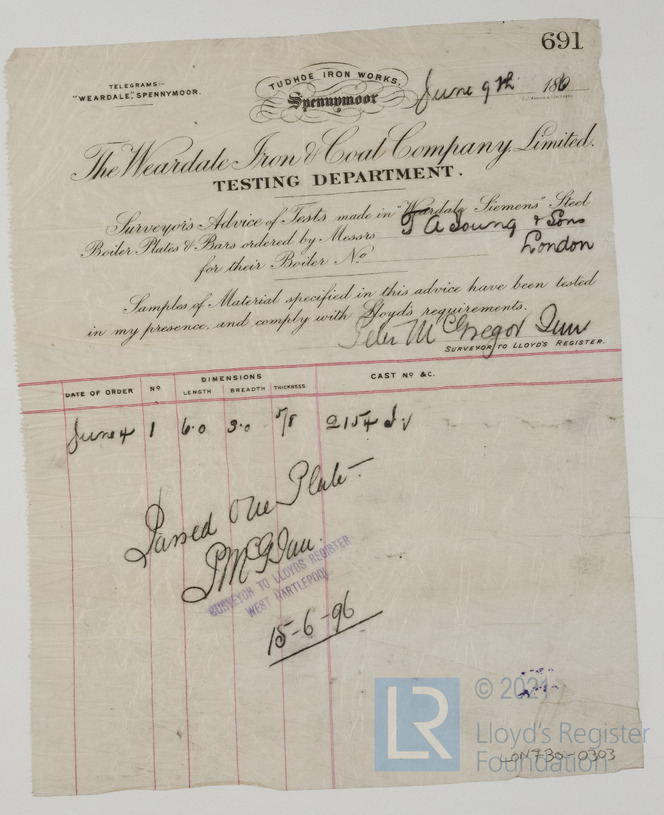 691
TELEGRAMS:-
"WEARDALE," SPENNYMOOR.
TUDHOE IRON WORKS,
Spennymoor
June 9th 189
The Weardale Iron & Coal Company, Limited.
TESTING DEPARTMENT.
Surveyor's Advice of Tests made in "Weardale Siemens" Steel
Boiler Plates & Bars ordered by Messrs T A Young & Sons
London
for their Boiler No
Samples of Material specified in this advice have been tested
in my presence, and comply with Lloyd's requirements.
Peter McGregor
SURVEYOR TO LLOYD'S REGISTER.
DATE OF ORDER No DIMENSIONS LENGTH BREADTH THICKNESS CAST No &C.
June 4 1 6.0 3.0 5/8 2154
Passed One Plate
SURVEYOR TO LLOYDS REGISTER
WEST HARTLEPOOL
15-6-96
LR © 2021
Lloyd's Register
Foundation
LON730-0303